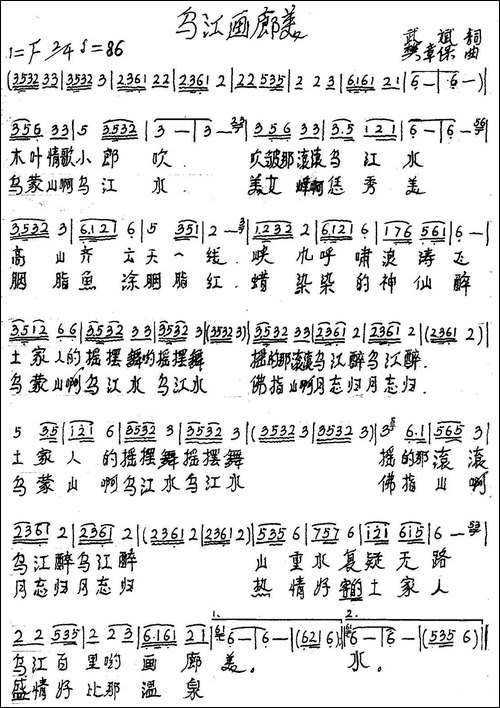 乌江画廊美
1=F 2/4 ♩=86
武 斌 詞
樊章保 曲
(3532 33|3532 3|2361 22|2361 2|22 535|2 23|6161 21|6 —|6 —)|
356 33|5 3532|3 —|3 —|356 63|3.5 121|6 —|6 —|
木叶情歌小 郎 吹. 吹皱那滚滚乌 江 水
乌蒙山啊乌 江 水. 秀 美
3532 3|6.121 6|5 351|2 —|1232 2|6.121 6|176 561|6 —|
高 山 齐 天 一 线. 峡 九 呼 啸 浪 涛
胭 脂 鱼 涂胭脂 红. 蜡 染 染 的 神 仙 醉
3512 66|3532 33|3532 3|(3532 3)|3532 33|2361 2|2361 2|(2361 2)|
土 家 人的摇摆舞哟摇摆舞 摇的那滚滚乌江醉乌江醉.
乌 蒙 山啊乌江水 乌江水 佛指山啊月忘归月忘归.
5 35|121 6|3532 3|3532 3|(3532 3|3532 3)|3 6.1|565 3|
土 家 人 的摇摆舞摇摆舞 摇的那滚 滚
乌 蒙 山 啊乌江水乌江水 佛指山 啊
2361 2|2361 2|(2361 2|2361 2)|535 6|757 6|121 615|6 —|
乌江醉乌江醉 山 重 水 复 疑 无 路
月忘归月忘归 热 情 好 客的土 家 人
2 2 535|2 2 3|6.161 21|1. 6 —|6 —|(621 6)|2. 6 —|6 —|(535 6)|
乌江百 里哟 画 廊 美. 水.
盛情好 比那 温 泉